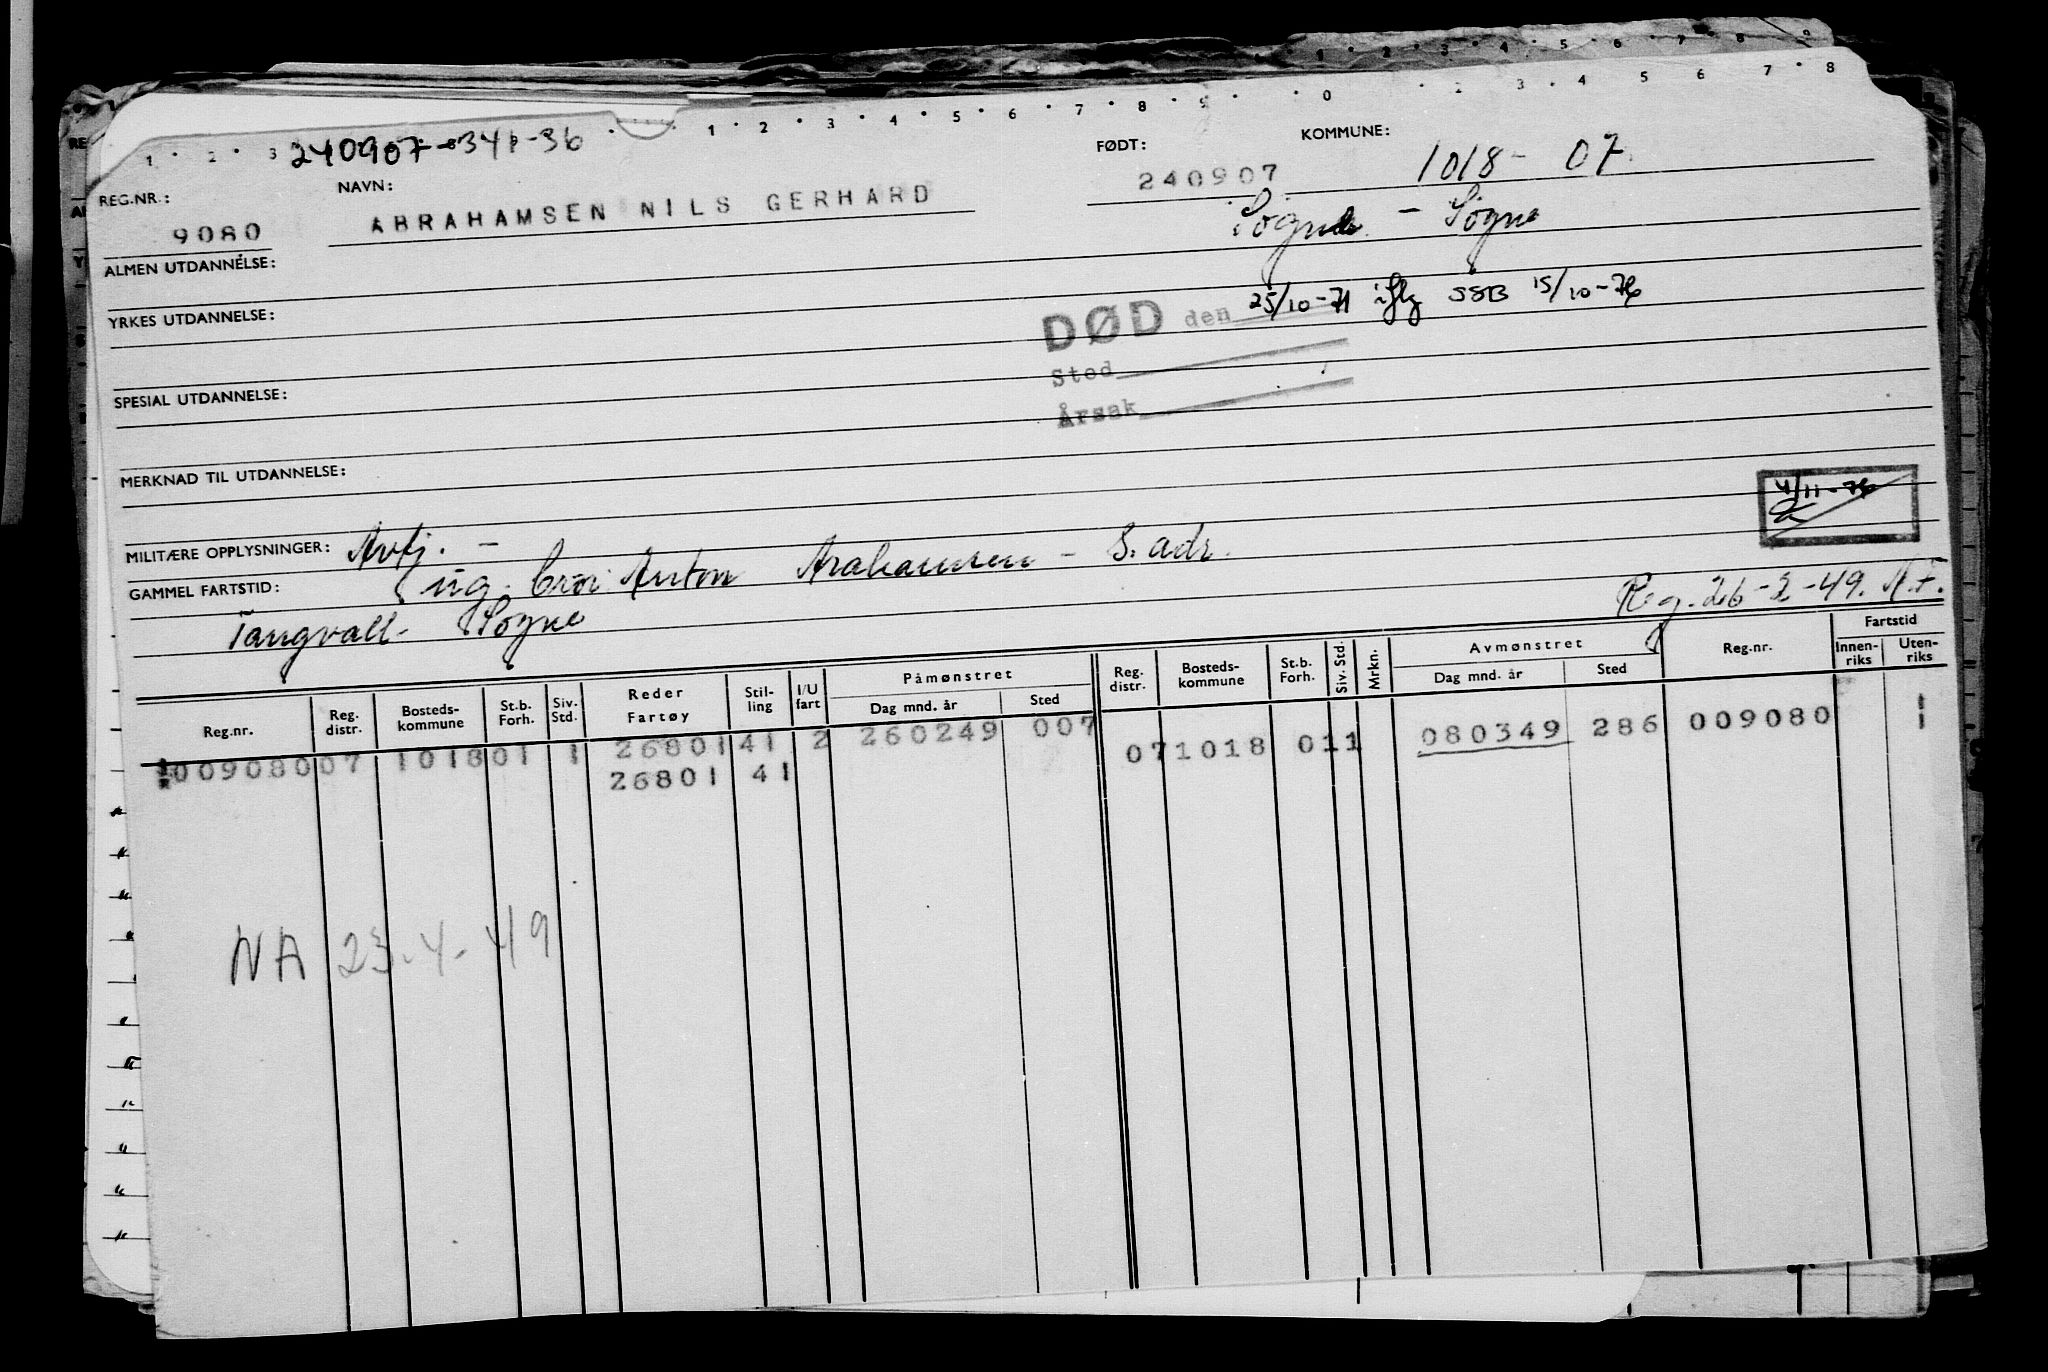 240907-341-36
REG.NR.: NAVN: FØDT: KOMMUNE:
9080 ABRAHAMSEN NILS GERHARD 240907 1018- 07.
Søgne - Søgne
ALMEN UTDANNELSE:
DØD den 25/10-71 iflg SSB 15/10-76
YRKES UTDANNELSE:
Sted
Årsak
SPESIAL UTDANNELSE:
MERKNAD TIL UTDANNELSE:
4/11-76
MILITÆRE OPPLYSNINGER: Avtj. -
GAMMEL FARTSTID: ug. bror Anton Arahamsen - S. adr.
Tangvall - Søgne
Reg. 26-2-49. A.F.
Reg.nr. Reg. distr. Bosteds-kommune St.b. Forh. Siv. Std. Reder Fartøy Stil-ling I/U fart Påmønstret Dag mnd. år Sted Reg. distr. Bosteds-kommune St.b. Forh. Siv. Std. Mrkn. Avmønstret Dag mnd. år Sted Reg.nr. Fartstid Innen-riks Uten-riks
009080 07 1018 01 1 26801 41 2 260249 007 07 1018 01 1 080349 286 009080 1
26801 41 1
NA 23.4-49